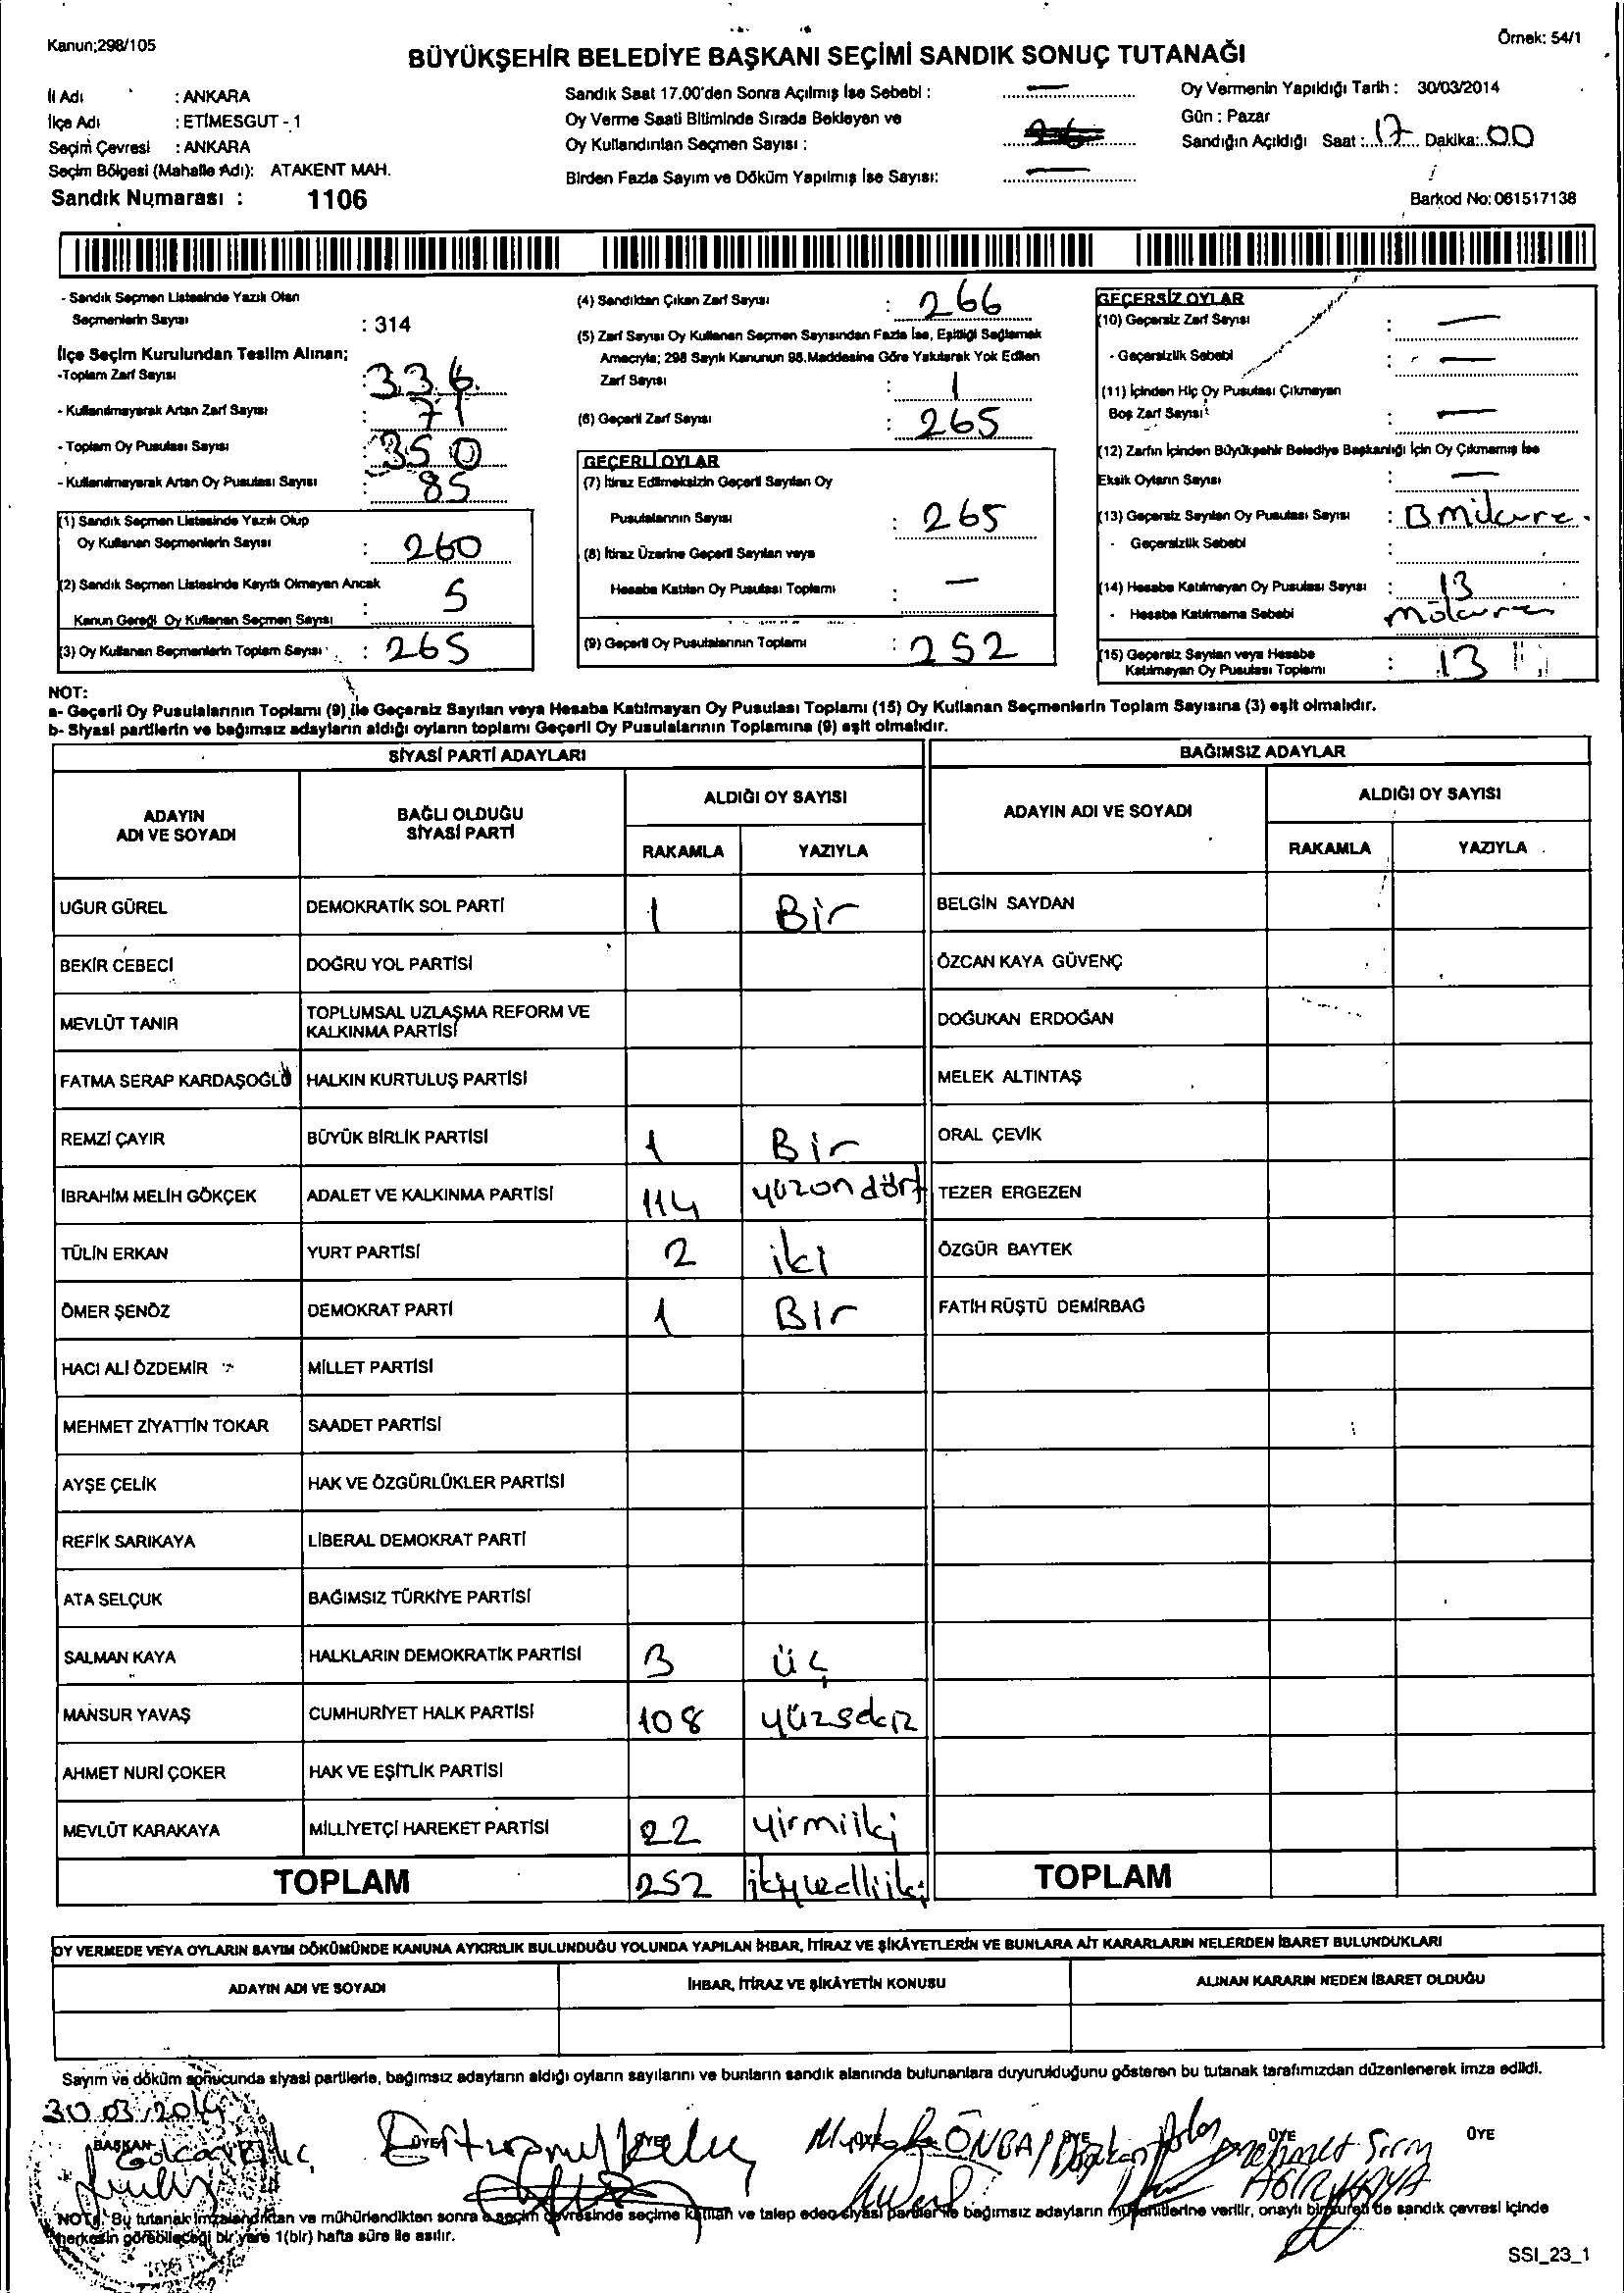 Kanun;298/105
Örnek: 54/1
BÜYÜKŞEHİR BELEDİYE BAŞKANI SEÇİMİ SANDIK SONUÇ TUTANAĞI
İl Adı : ANKARA
İlçe Adı : ETİMESGUT - 1
Seçim Çevresi : ANKARA
Seçim Bölgesi (Mahalle Adı): ATAKENT MAH.
Sandık Numarası : 1106
Sandık Saat 17.00'den Sonra Açılmış İse Sebebi : —
Oy Verme Saati Bitiminde Sırada Bekleyen ve
Oy Kullandırılan Seçmen Sayısı :
Birden Fazla Sayım ve Döküm Yapılmış İse Sayısı: —
Oy Vermenin Yapıldığı Tarih : 30/03/2014
Gün : Pazar
Sandığın Açıldığı Saat : 17 Dakika: 00
Barkod No: 061517138
- Sandık Seçmen Listesinde Yazılı Olan
Seçmenlerin Sayısı : 314
İlçe Seçim Kurulundan Teslim Alınan;
-Toplam Zarf Sayısı : 336
- Kullanılmayarak Artan Zarf Sayısı : 71
- Toplam Oy Pusulası Sayısı : 350
- Kullanılmayarak Artan Oy Pusulası Sayısı : 85
(1) Sandık Seçmen Listesinde Yazılı Olup
Oy Kullanan Seçmenlerin Sayısı : 260
(2) Sandık Seçmen Listesinde Kayıtlı Olmayan Ancak
Kanun Gereği Oy Kullanan Seçmen Sayısı : 5
(3) Oy Kullanan Seçmenlerin Toplam Sayısı : 265
(4) Sandıktan Çıkan Zarf Sayısı : 266
(5) Zarf Sayısı Oy Kullanan Seçmen Sayısından Fazla İse, Eşitliği Sağlamak
Amacıyla; 298 Sayılı Kanunun 98.Maddesine Göre Yakılarak Yok Edilen
Zarf Sayısı : 1
(6) Geçerli Zarf Sayısı : 265
GEÇERLİ OYLAR
(7) İtiraz Edilmeksizin Geçerli Sayılan Oy
Pusulalarının Sayısı : 265
(8) İtiraz Üzerine Geçerli Sayılan veya
Hesaba Katılan Oy Pusulası Toplamı : —
(9) Geçerli Oy Pusulalarının Toplamı : 252
GEÇERSİZ OYLAR
(10) Geçersiz Zarf Sayısı : —
- Geçersizlik Sebebi : —
(11) İçinden Hiç Oy Pusulası Çıkmayan
Boş Zarf Sayısı : —
(12) Zarfın İçinden Büyükşehir Belediye Başkanlığı İçin Oy Çıkmamış İse
Eksik Oyların Sayısı : —
(13) Geçersiz Sayılan Oy Pusulası Sayısı :
- Geçersizlik Sebebi :
(14) Hesaba Katılmayan Oy Pusulası Sayısı : 13
- Hesaba Katılmama Sebebi
(15) Geçersiz Sayılan veya Hesaba
Katılmayan Oy Pusulası Toplamı : 13
NOT:
a- Geçerli Oy Pusulalarının Toplamı (9) ile Geçersiz Sayılan veya Hesaba Katılmayan Oy Pusulası Toplamı (15) Oy Kullanan Seçmenlerin Toplam Sayısına (3) eşit olmalıdır.
b- Siyasi partilerin ve bağımsız adayların aldığı oyların toplamı Geçerli Oy Pusulalarının Toplamına (9) eşit olmalıdır.
SİYASİ PARTİ ADAYLARI
BAĞIMSIZ ADAYLAR
ADAYIN
ADI VE SOYADI
BAĞLI OLDUĞU
SİYASİ PARTİ
ALDIĞI OY SAYISI
RAKAMLA YAZIYLA
ADAYIN ADI VE SOYADI
ALDIĞI OY SAYISI
RAKAMLA YAZIYLA
UĞUR GÜREL DEMOKRATİK SOL PARTİ 1 Bir BELGİN SAYDAN
BEKİR CEBECİ DOĞRU YOL PARTİSİ ÖZCAN KAYA GÜVENÇ
MEVLÜT TANIR TOPLUMSAL UZLAŞMA REFORM VE
KALKINMA PARTİSİ DOĞUKAN ERDOĞAN
FATMA SERAP KARDAŞOĞLU HALKIN KURTULUŞ PARTİSİ MELEK ALTINTAŞ
REMZİ ÇAYIR BÜYÜK BİRLİK PARTİSİ 1 Bir ORAL ÇEVİK
İBRAHİM MELİH GÖKÇEK ADALET VE KALKINMA PARTİSİ 114 yüzondört TEZER ERGEZEN
TÜLİN ERKAN YURT PARTİSİ 2 iki ÖZGÜR BAYTEK
ÖMER ŞENÖZ DEMOKRAT PARTİ 1 Bir FATİH RÜŞTÜ DEMİRBAĞ
HACI ALİ ÖZDEMİR MİLLET PARTİSİ
MEHMET ZİYATTİN TOKAR SAADET PARTİSİ
AYŞE ÇELİK HAK VE ÖZGÜRLÜKLER PARTİSİ
REFİK SARIKAYA LİBERAL DEMOKRAT PARTİ
ATA SELÇUK BAĞIMSIZ TÜRKİYE PARTİSİ
SALMAN KAYA HALKLARIN DEMOKRATİK PARTİSİ 3 üç
MANSUR YAVAŞ CUMHURİYET HALK PARTİSİ 108 yüzsekiz
AHMET NURİ ÇOKER HAK VE EŞİTLİK PARTİSİ
MEVLÜT KARAKAYA MİLLİYETÇİ HAREKET PARTİSİ 22 yirmiiki
TOPLAM 252 ikiyüzelliiki TOPLAM
OY VERMEDE VEYA OYLARIN SAYIM DÖKÜMÜNDE KANUNA AYKIRILIK BULUNDUĞU YOLUNDA YAPILAN İHBAR, İTİRAZ VE ŞİKÂYETLERİN VE BUNLARA AİT KARARLARIN NELERDEN İBARET BULUNDUKLARI
ADAYIN ADI VE SOYADI İHBAR, İTİRAZ VE ŞİKÂYETİN KONUSU ALINAN KARARIN NEDEN İBARET OLDUĞU
Sayım ve döküm sonucunda siyasi partilerle, bağımsız adayların aldığı oyların sayılarını ve bunların sandık alanında bulunanlara duyurulduğunu gösteren bu tutanak tarafımızdan düzenlenerek imza edildi.
30.03.2014
BAŞKAN ÜYE ÜYE ÜYE ÜYE ÜYE ÜYE
NOT: Bu tutanak imzalandıktan ve mühürlendikten sonra o seçim çevresinde seçime katılan ve talep eden siyasi partiler ile bağımsız adayların müşahitlerine verilir, onaylı bir sureti de sandık çevresi içinde
herkesin görebileceği bir yere 1(bir) hafta süre ile asılır.
SSI_23_1